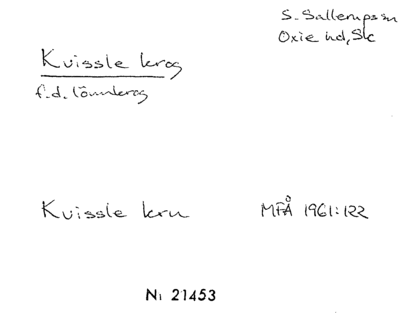 S. Sallerups sn
Oxie hd, Sk
Kvissle krog
f.d. lönnkrog
Kvissle kru MFÅ 1961:122
Ni 21453